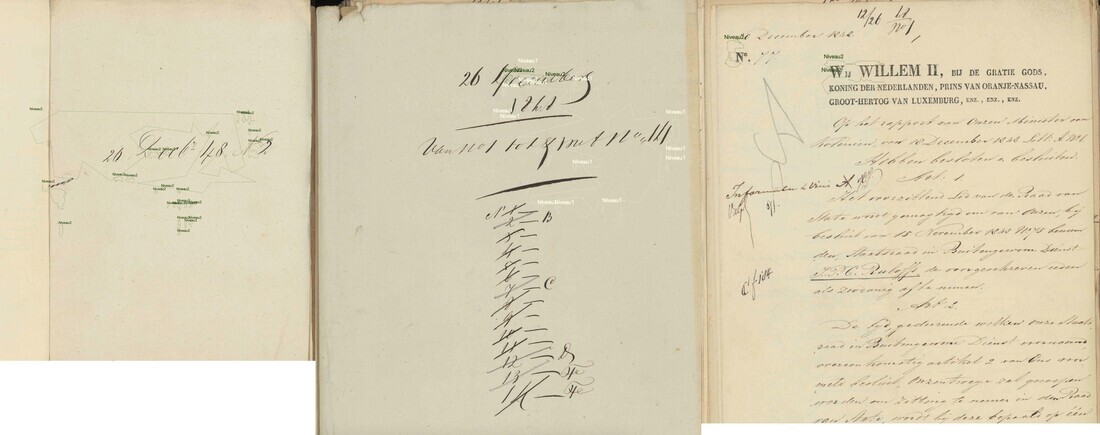 26 Dec 1848 N 2
Niveau1
Niveau2
26 December
1848
Van no 1 tot & met No 14
No 1
2 — B
3 —
4 —
5 —
6 —
7 — C
8 —
9 —
10 —
11 —
12 —
13 —
14 —
12/26
December 1848
N. 77
WIJ WILLEM II, BIJ DE GRATIE GODS,
KONING DER NEDERLANDEN, PRINS VAN ORANJE-NASSAU,
GROOT-HERTOG VAN LUXEMBURG, ENZ., ENZ., ENZ.
Op het rapport van Onzen Minister van
van 12 December 1848
Hebben besloten & besluiten
Art. 1
Het voorzittend Lid van den Raad van
State wordt gemagtigd om van Onzen, bij
besluit van 15 November 1848 No 75 benoem
den, Staatsraad in Buitengewone Dienst
de voorgeschreven eeden
als zoodanig af te nemen.
Art. 2
De tijd, gedurende welken onze Staats
raad in Buitengewone Dienst voornoemd,
overeenkomstig artikel 2 van Ons voor
meld besluit, zal geroepen
worden om zitting te nemen in den Raad
van State, wordt bij deze bepaald op één